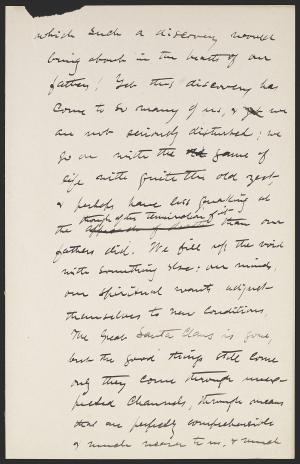 which such a discovery would
bring about in the hearts of our
fathers! Yet this discovery has
come to so many of us, & yet we
are not seriously disturbed; we
go on with the old game of
life with quite the old zest,
& perhaps have less quaking at
though of the termination of it
the approach of death than our
fathers did. We fill up the void
with something else; our minds,
our spiritual wants adjust
themselves to new conditions.
The great Santa Claus is gone,
but the good things still come
only they come through unex-
pected channels, through means
that are perfectly comprehensible
& much nearer to us, & much